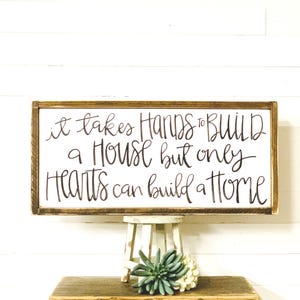 it takes HANDS to BUILD
a HOUSE but only
HEARTS can build a Home